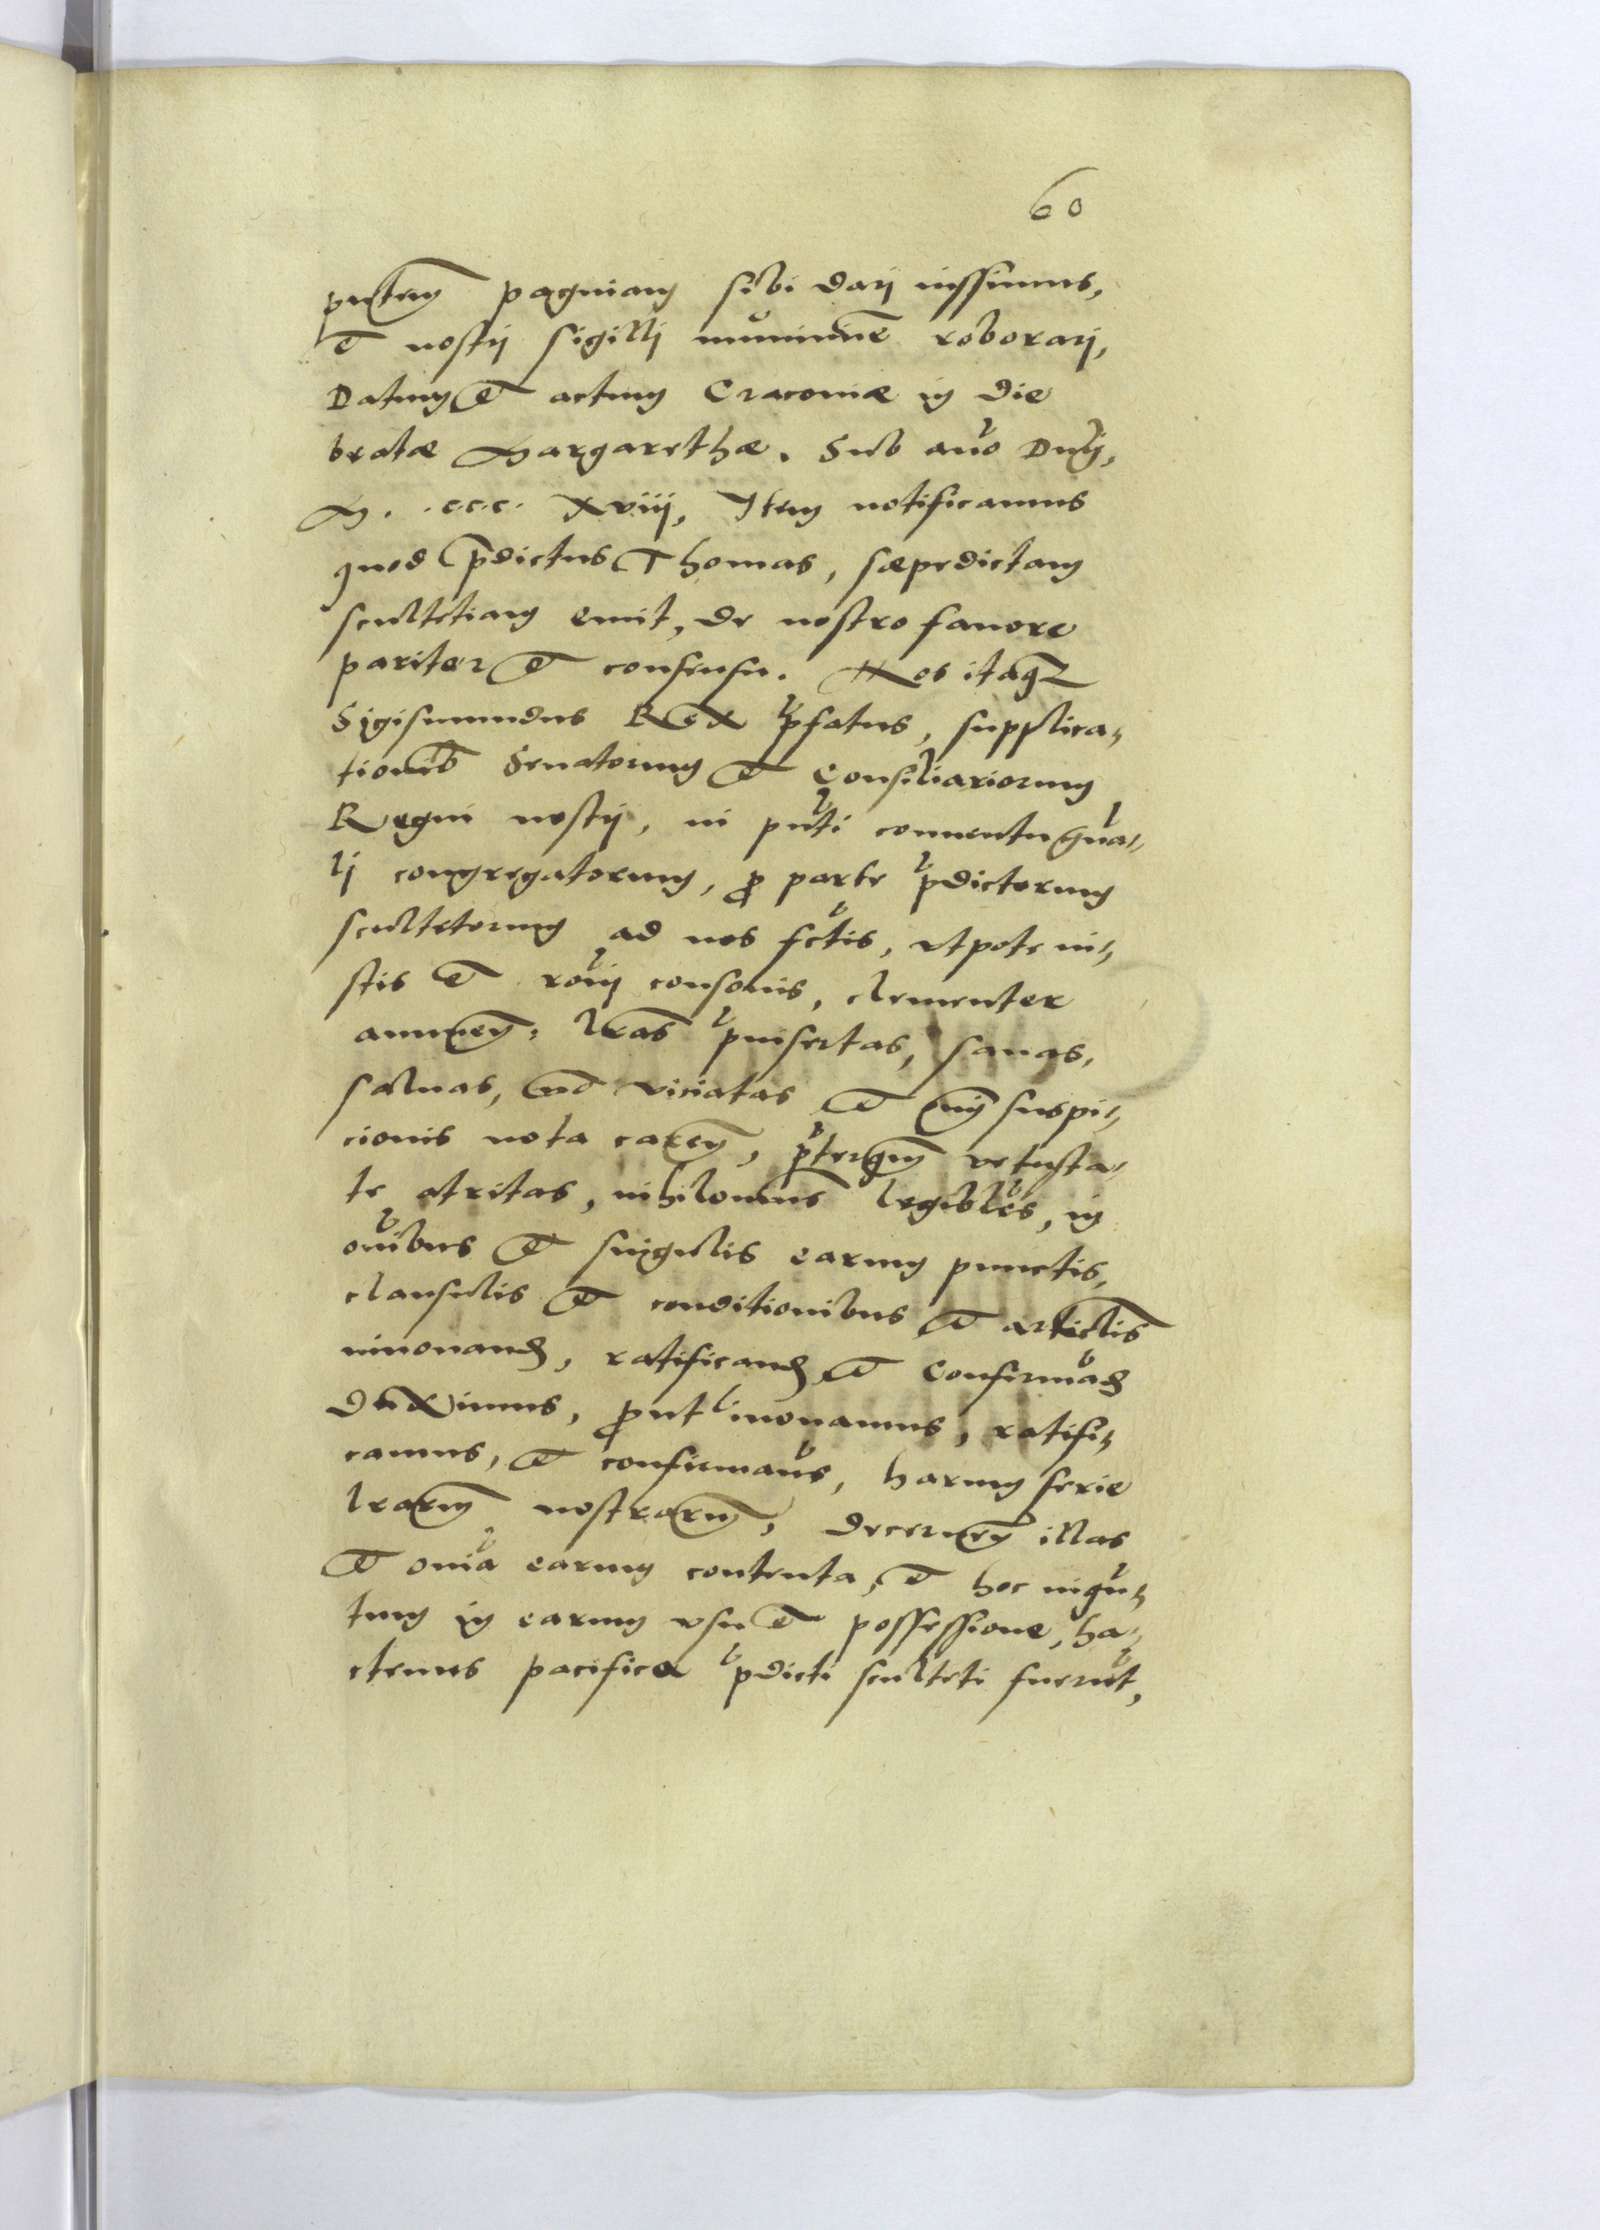 60
pntem paginam sibi darj iussimus,
et nostrj sigillj munimine roborarj,
Datum et actum Cracouiæ in die
beatæ Margarethæ. Sub año Dnj,
M. .ccc. xviij, Item notificamus
quod p̄dictus Thomas, sæpedictam
scultetiam emit, de nostro fauore
pariter et consensu. Nos itaq3
Sigismundus Rex p̃fatus, supplica„
tionib Senatorum et Consiliariorum
Regni nostrj, in pñti conuentu gña„
lj congregatorum, ꝓ parte p̃dictorum
scultetorum ad nos fctis, vtpote iu„
stis et roñj consonis, clementer
annuen: lras p̃insertas, sanas,
saluas, nō viciatas et omj suspi„
cionis nota caren, p̃terqm vetusta„
te atritas, nihilominus legibles, in
oĩbus et singulis earum punctis,
clausulis et conditionibus et articlis
innouand, ratificand et Confirmãd
Duximus, ꝓut innouamus, ratifi„
camus, et confirmaũs, harum serie
lrarum nostrarum, decernen illas
et oniã earum contenta, et hoc inqũ„
tum in earum vsu et possessione, ha„
ctenus pacifica p̃dicti sculteti fuerũt,